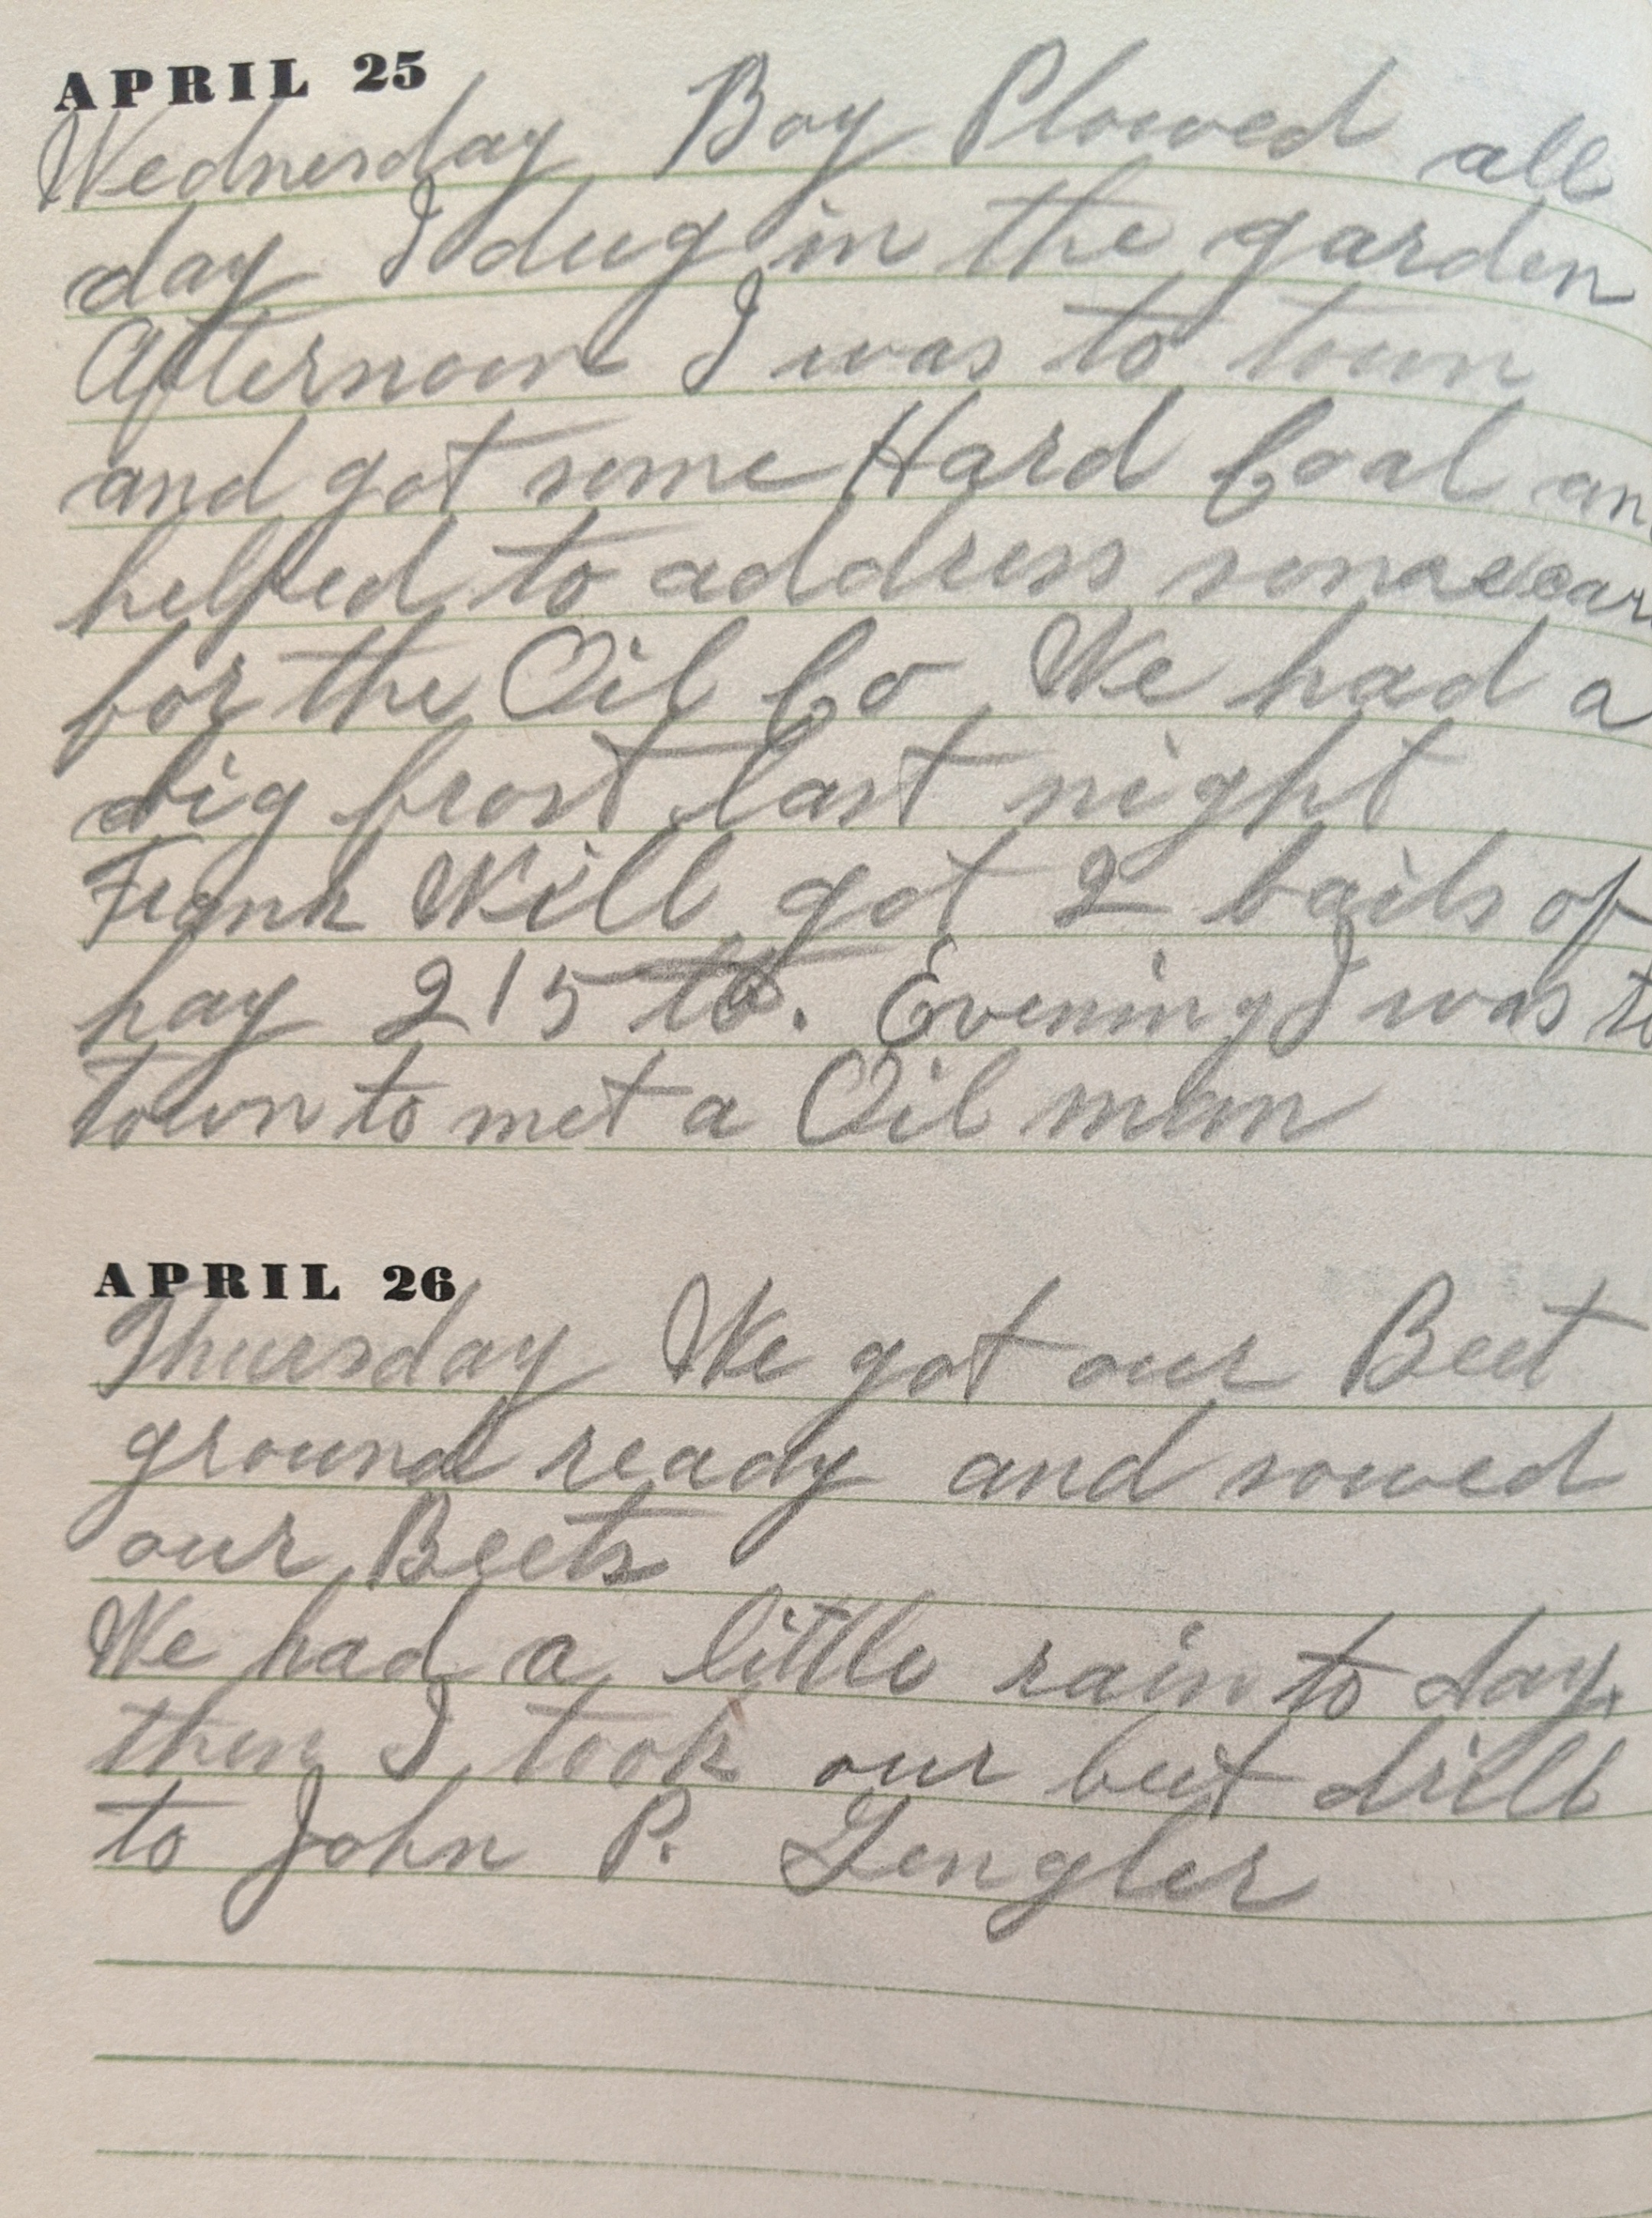 APRIL 25
Wednesday Boy Plowed all
day I dug in the garden
Afternoon I was to town
and got some Hard Coal an
helped to address some car
for the Oil Co We had a
big frost last night
Frank Will got 2 bails of
hay 215 lb. Evening I was to
town to met a Oil man
APRIL 26
Thursday We got our Beet
ground ready and sowed
our Beets
We had a little rain to day,
then I took our beet drill
to John P. Gengler